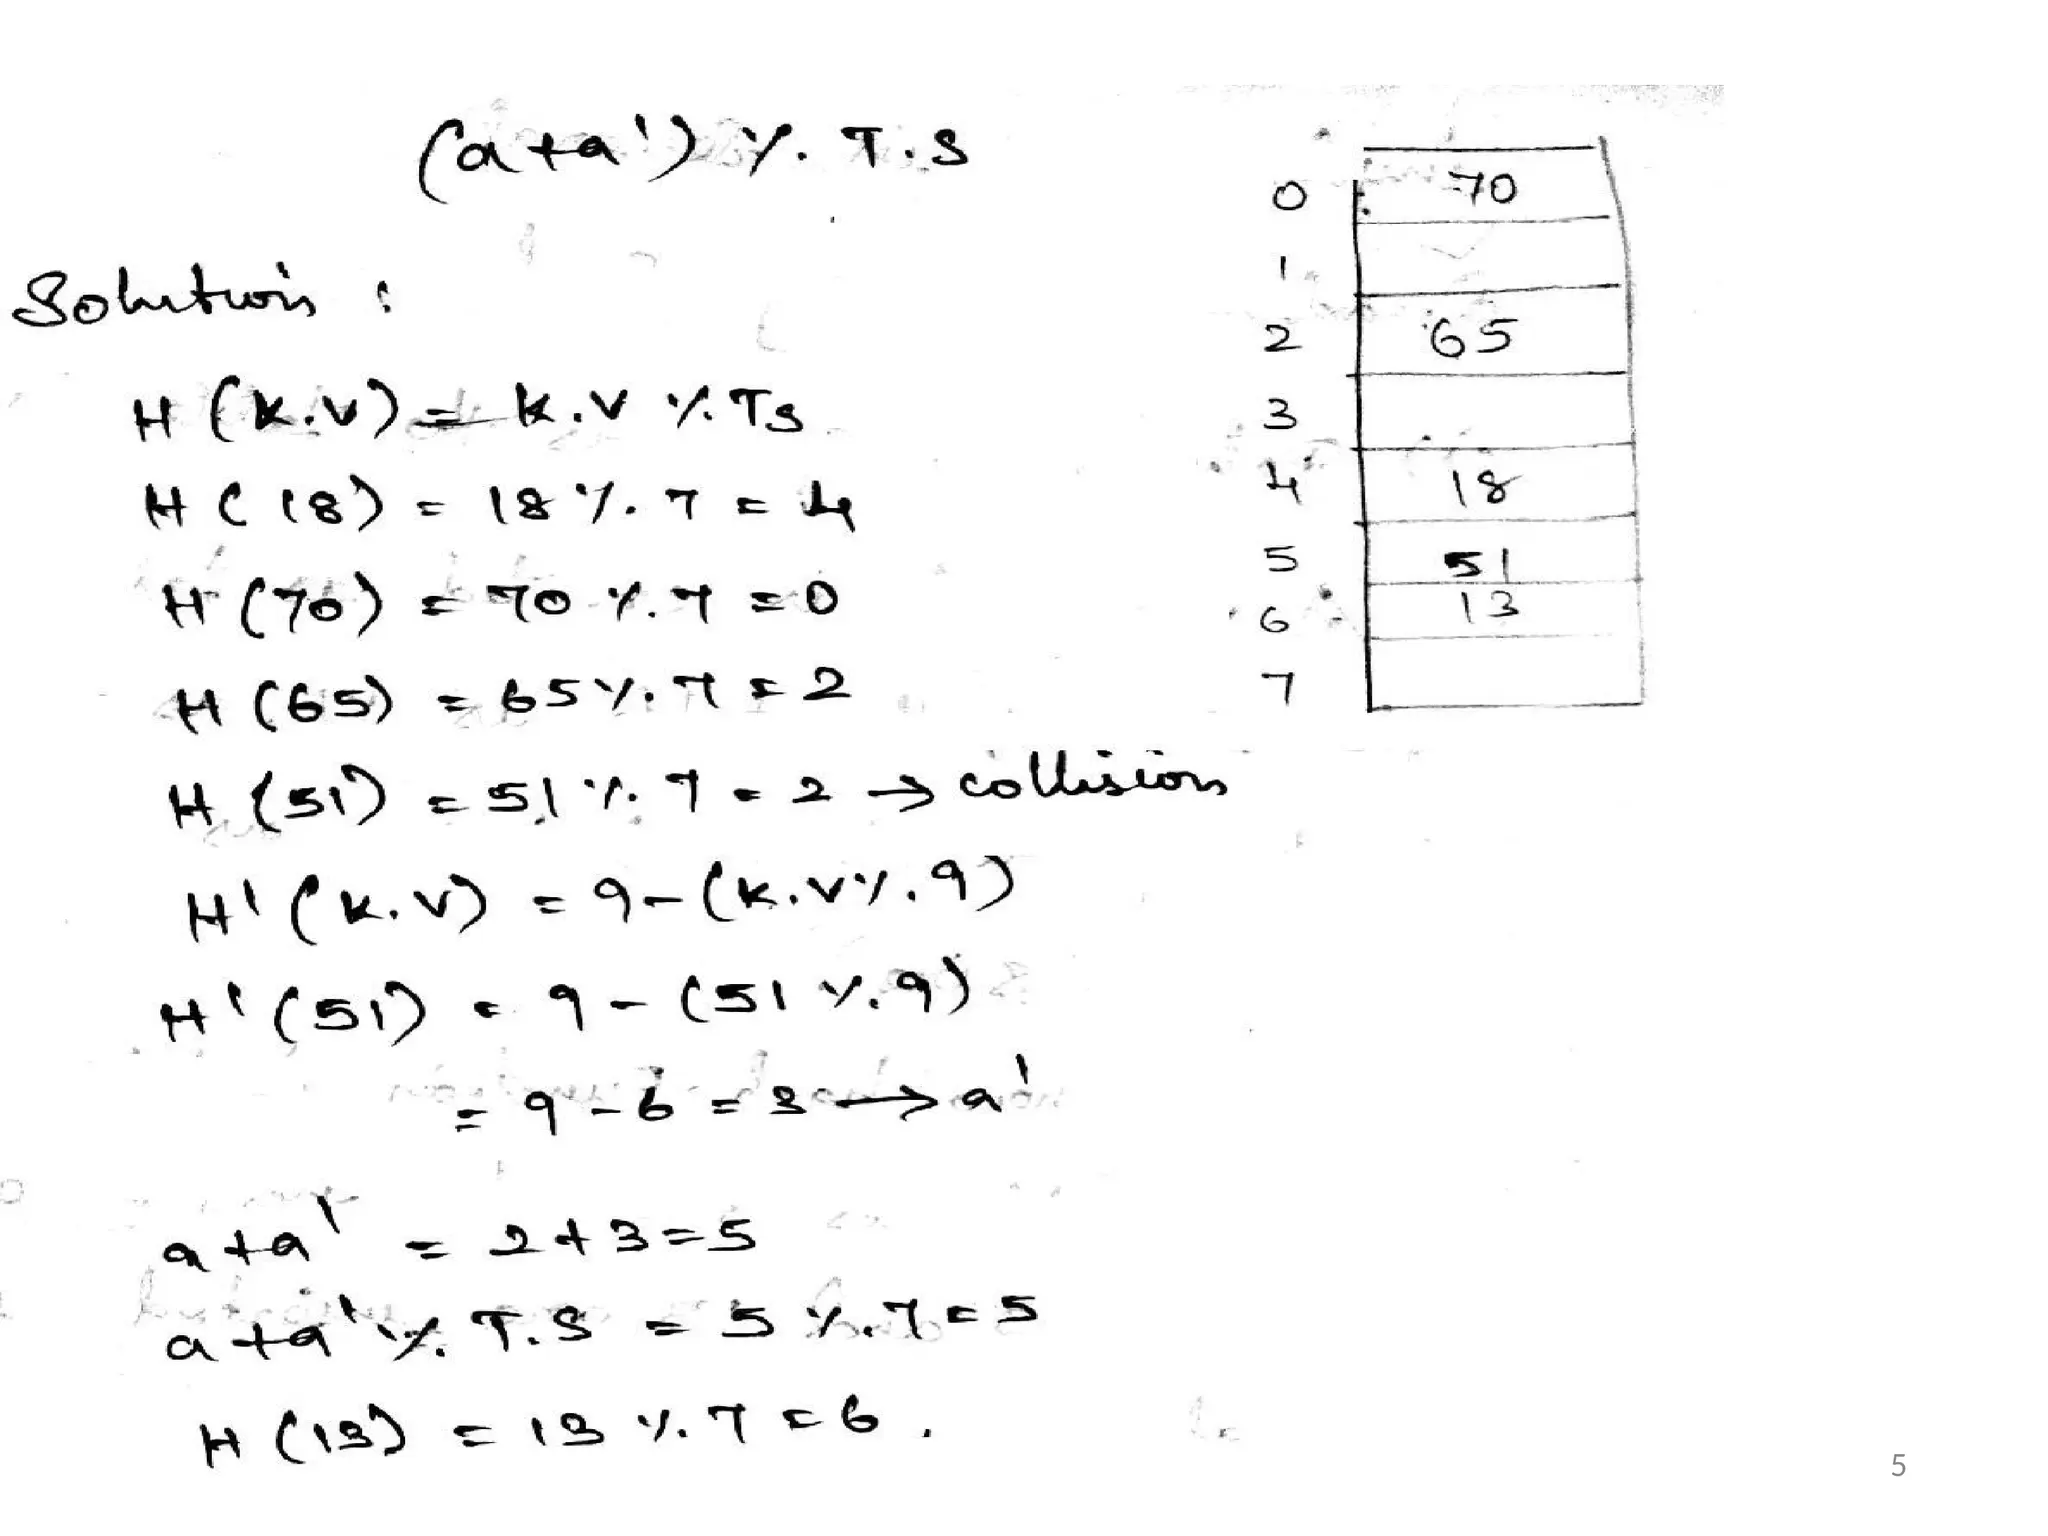 (a+a') %. T.S
Solution :
H (K.V) = K.V %. TS
H (18) = 18 %. 7 = 4
H (70) = 70 %. 7 = 0
H (65) = 65 %. 7 = 2
H (51) = 51 %. 7 = 2 → collision
H' (K.V) = 9 - (K.V %. 9)
H' (51) = 9 - (51 %. 9)
= 9 - 6 = 3 → a'
a + a' = 2 + 3 = 5
a + a' %. T.S = 5 %. 7 = 5
H (13) = 13 %. 7 = 6 .
0 70
1
2 65
3
4 18
5 51
6 13
7
5